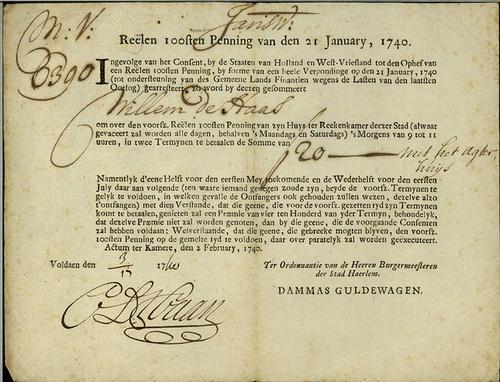 M: V:
Janstr:
Reëlen 100sten Penning van den 21 January, 1740.
6390
Ingevolge van het Consent, by de Staaten van Holland en West-Vriesland tot den Ophef van
een Reëlen 100sten Penning, by forme van een heele Verpondinge op den 21 January, 1740
(tot ondersteuning van des Gemeene Lands Finantien wegens de Lasten van den laatsten
Oorlog) gearresteert, zo word by deezen gesommeert
Willem De Haas
om over den voorsz. Reëlen 100sten Penning van zyn Huys ter Reekenkamer dezer Stad (alwaar
gevaceert zal worden alle dagen, behalven 's Maandags en Saturdags) 's Morgens van 9 tot 11
uuren, in twee Termynen te betaalen de Somme van
ƒ 20 — met het agter
huijs
Namentlyk d'eene Helft voor den eersten Mey toekomende en de Wederhelft voor den eersten
July daar aan volgende (ten waare iemand gelegen zoude zyn, beyde de voorsz. Termynen te
gelyk te voldoen, in welken gevalle de Ontfangers ook gehouden zullen wezen, dezelve alzo
t'ontfangen) met dien Verstande, dat die geene, die voor de voorsz. gezetten tyd zyn Termynen
komt te betaalen, genieten zal een Præmie van vier ten Honderd van yder Termyn, behoudelyk,
dat dezelve Præmie niet zal worden genoten, dan by die geene, die de voorgaande Consenten
zal hebben voldaan: Welverstaande, dat die geene, die gebreeke mogten blyven, den voorsz.
100sten Penning op de gemelte tyd te voldoen, daar over paratelyk zal worden geëxecuteert.
Actum ter Kamere, den 2 February, 1740.
Voldaen den 3/17 1740
Ter Ordonnantie van de Heeren Burgermeesteren
der Stad Haerlem.
DAMMAS GULDEWAGEN.